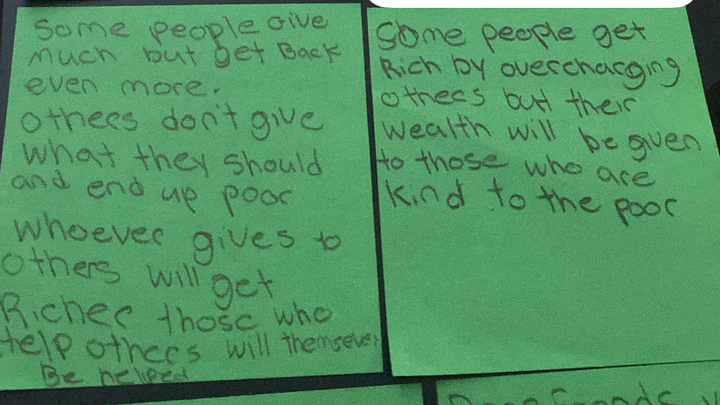 Some people Give
much but get Back
even more.
others don't give
what they should
and end up poor
whoever gives to
others will get
Richer those who
Help others will themselves
Be helped
Some people get
Rich by overcharging
others but their
wealth will be given
to those who are
kind to the poor